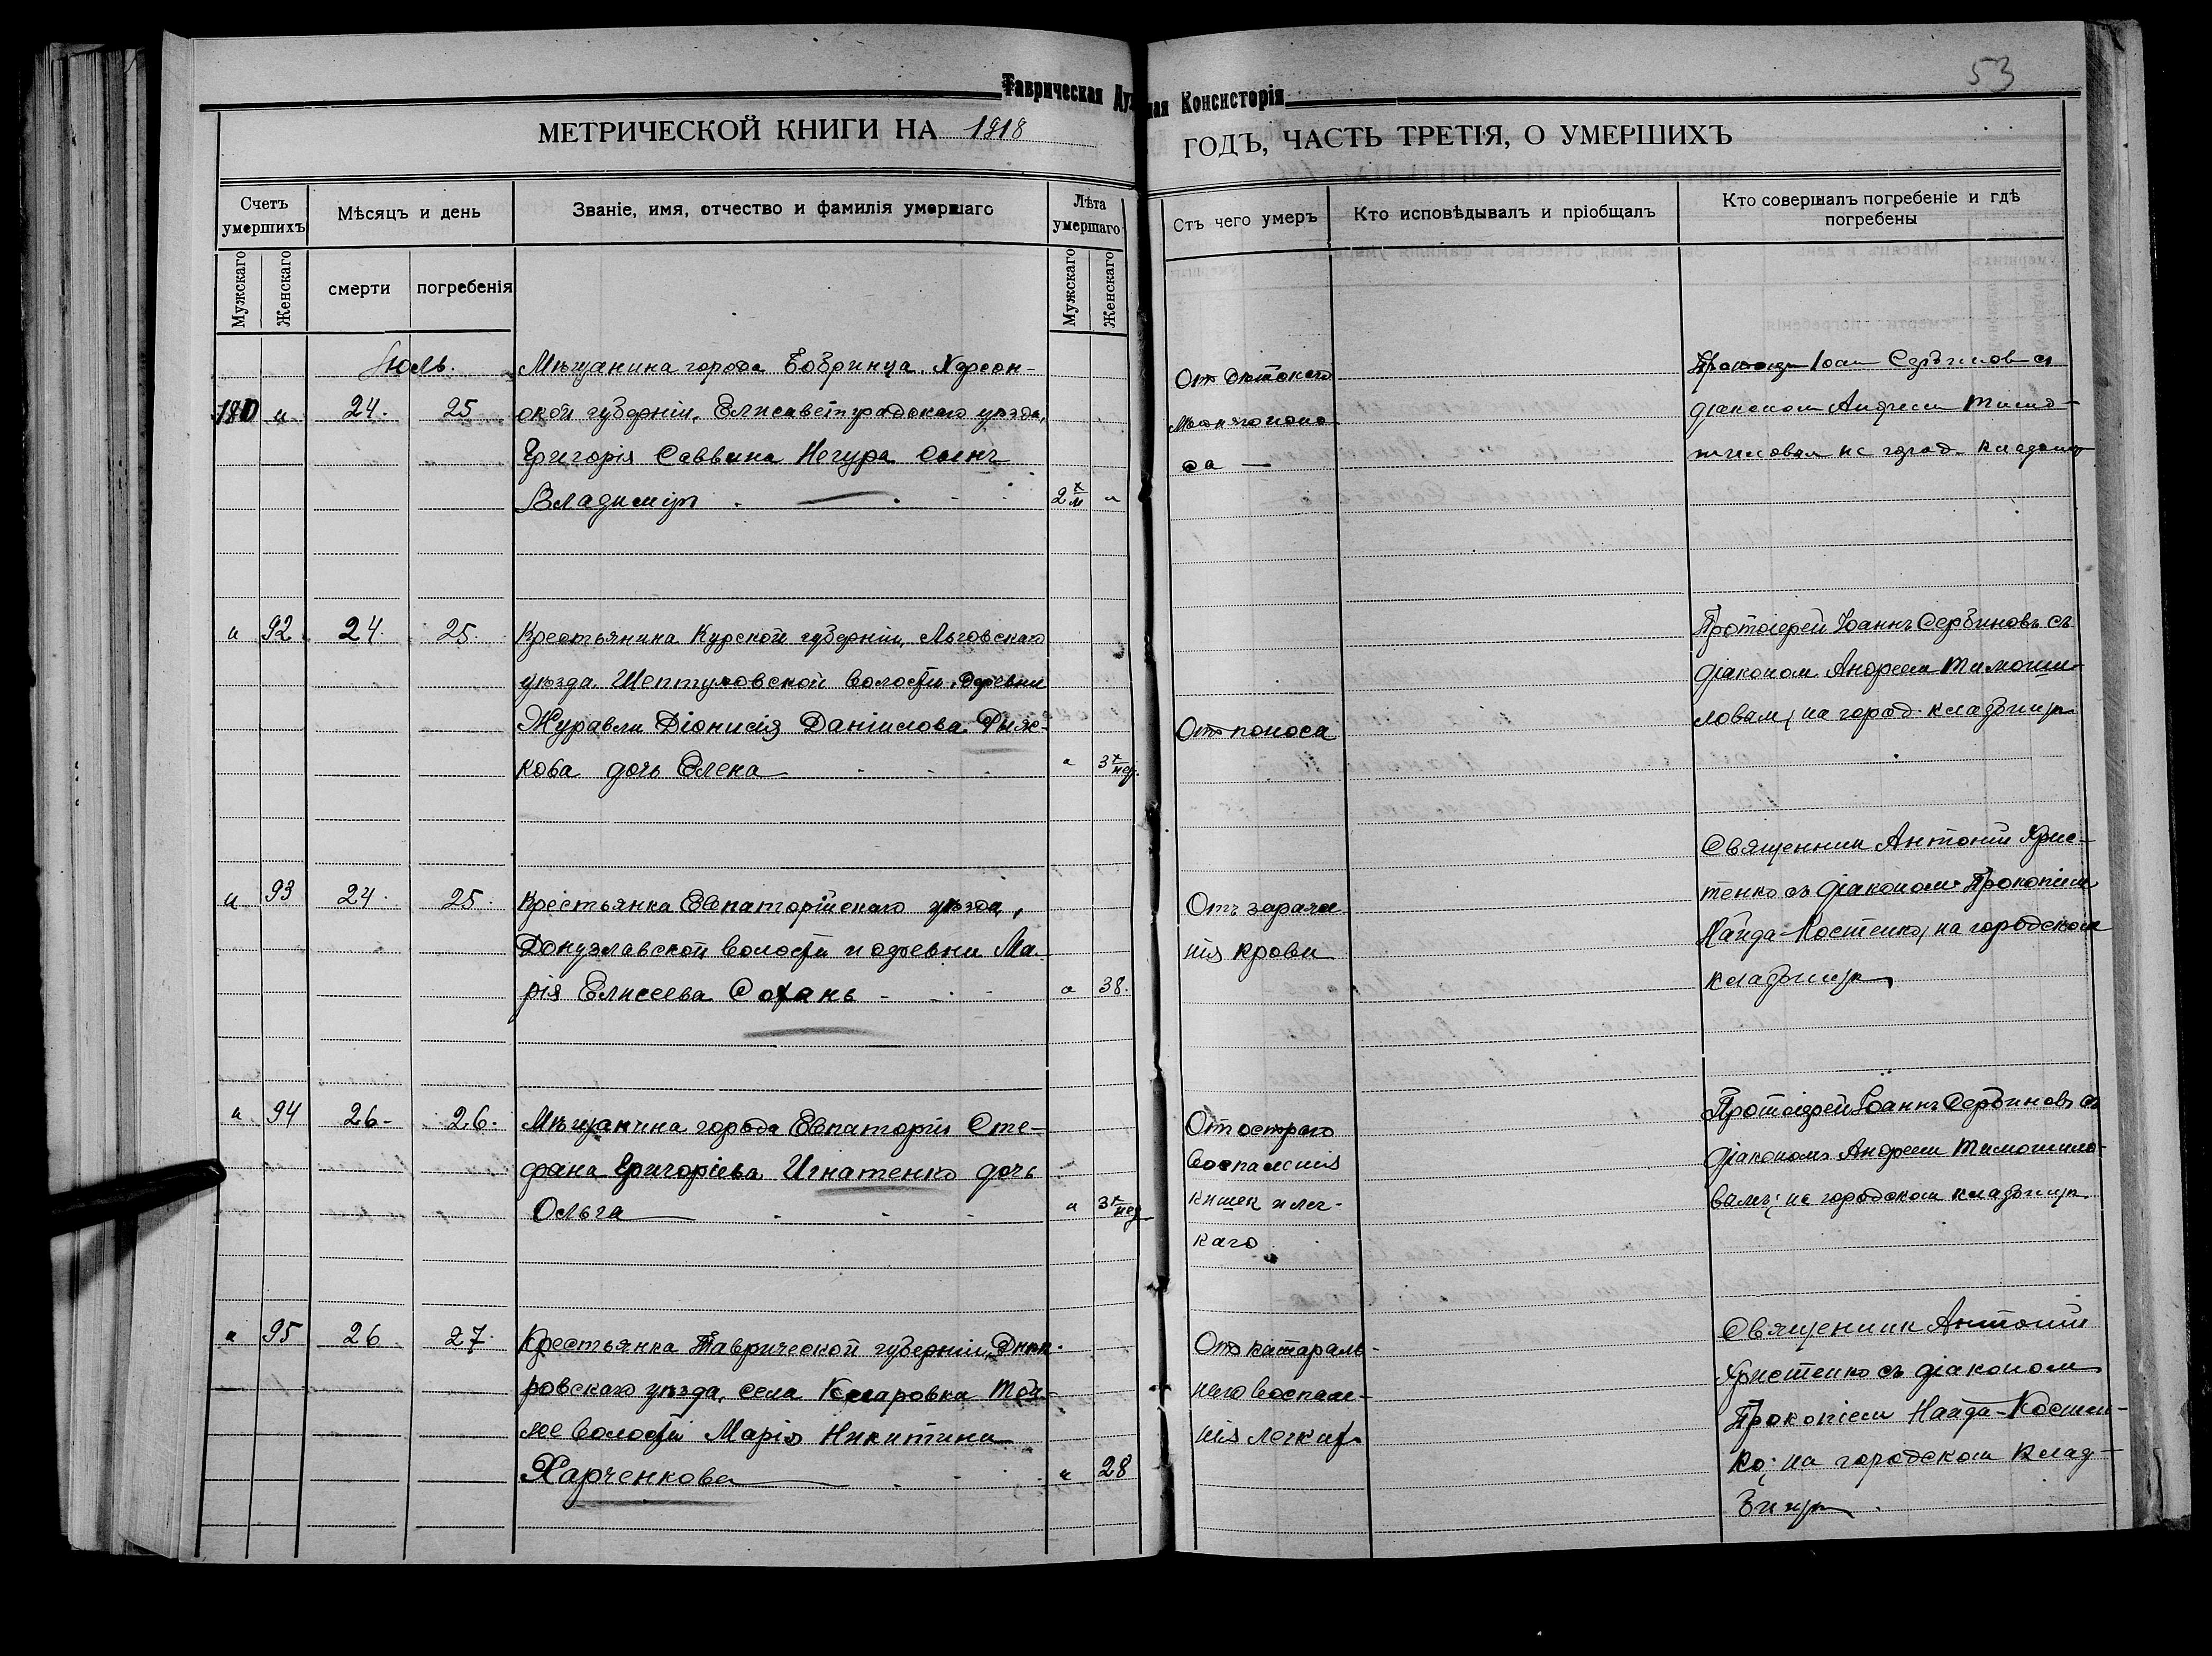 53
Таврическая Духовная Консисторія
МЕТРИЧЕСКОЙ КНИГИ НА 1918 ГОДЪ, ЧАСТЬ ТРЕТІЯ, О УМЕРШИХЪ
Счетъ умершихъ
Мѣсяцъ и день
Званіе, имя, отчество и фамилія умершаго
Лѣта умершаго
Отъ чего умеръ
Кто исповѣдывалъ и пріобщалъ
Кто совершалъ погребеніе и гдѣ погребены
Мужскаго
Женскаго
смерти
погребенія
Мужскаго
Женскаго
Іюль.
180 " 24. 25
Мѣщанина города Бобринца Херсон-
ской губерніи, Елисаветградскаго уѣзда,
Григорія Саввина Негура сынъ
Владиміръ
2 х/м "
От дѣтскаго
поно-
са
Протоіер Іоан Сербинов съ
діаконом Андреем Тимо-
шиловым на город. кладбищ
" 92 24. 25.
Крестьянина Курской губерніи, Льговскаго
уѣзда Шептуховской волости, деревни
Журавли Діонисія Даніилова Рыж-
кова дочь Елена
" 3 х/нед.
От поноса
Протоіерей Іоаннъ Сербиновъ съ
діаконом Андреем Тимоши-
ловым, на город. кладбищѣ
" 93 24. 25.
Крестьянка Евпаторійскаго уѣзда,
Донузлавской волости и деревни Ма-
рія Елисеева Сохань
" 38.
Отъ зараже-
нія крови
Священник Антоній Хрис-
тенко съ діакономъ Прокопіем
Найда-Костенко, на городском
кладбищѣ
" 94 26. 26.
Мѣщанина города Евпаторіи Сте-
фана Григоріева Игнатенко дочь
Ольга
" 3 х/нед
От остраго
воспаленія
кишек и лег-
каго
Протоіерей Іоаннъ Сербиновъ съ
діакономъ Андреем Тимошило-
вымъ; на городском кладбищѣ
" 95 26 27.
Крестьянка Таврической губерніи, Днѣп-
ровскаго уѣзда, села
волости Марія Никитина
Харченкова
" 28
От катараль-
наго воспале-
нія легких
Священник Антоній
Христенко съ діаконом
Прокопіем Найда-Костен-
ко; на городском клад-
бищѣ